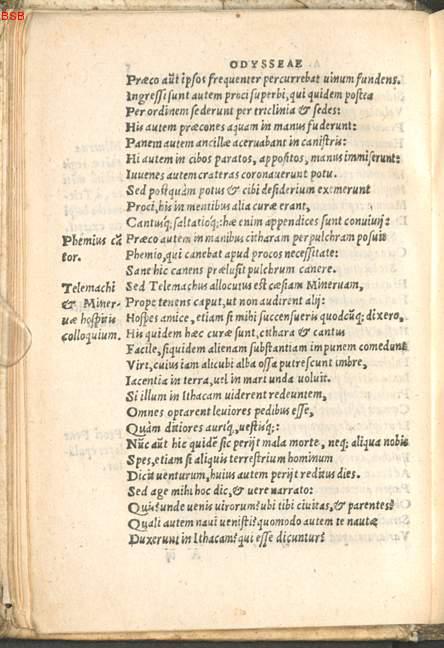 BSB
ODYSSEAE
Præco aūt ipsos frequenter percurrebat uinum fundens.
Ingressi sunt autem proci superbi, qui quidem postea
Per ordinem sederunt per triclinia & sedes:
His autem præcones aquam in manus fuderunt:
Panem autem ancillæ aceruabant in canistris:
Hi autem in cibos paratos, appositos, manus immiserunt:
Iuuenes autem crateras coronauerunt potu.
Sed postquàm potus & cibi desiderium exemerunt
Proci, his in mentibus alia curæ erant,
Cantusq;, saltatioq;: hæ enim appendices sunt conuiuij:
Phemius cā
tor.
Præco autem in manibus citharam perpulchram posuit
Phemio, qui canebat apud procos necessitate:
Sane hic canens prælusit pulchrum canere.
Telemachi
& Miner-
uæ hospitis
colloquium.
Sed Telemachus allocutus est cæsiam Mineruam,
Prope tenens caput, ut non audirent alij:
Hospes amice, etiam si mihi succensueris quodcūq; dixero,
His quidem hæc curæ sunt, cithara & cantus
Facile, siquidem alienam substantiam impunem comedunt
Viri, cuius iam alicubi alba ossa putrescunt imbre,
Iacentia in terra, uel in mari unda uoluit.
Si illum in Ithacam uiderent redeuntem,
Omnes optarent leuiores pedibus esse,
Quàm ditiores auriq;, uestisq;:
Nūc aūt hic quidē sic perijt mala morte, neq; aliqua nobis
Spes, etiam si aliquis terrestrium hominum
Dicit uenturum, huius autem perijt reditus dies.
Sed age mihi hoc dic, & uere narrato:
Quis? unde uenis uirorum? ubi tibi ciuitas, & parentes?
Quali autem naui uenisti? quomodo autem te nautæ
Duxerunt in Ithacam? qui esse dicuntur?